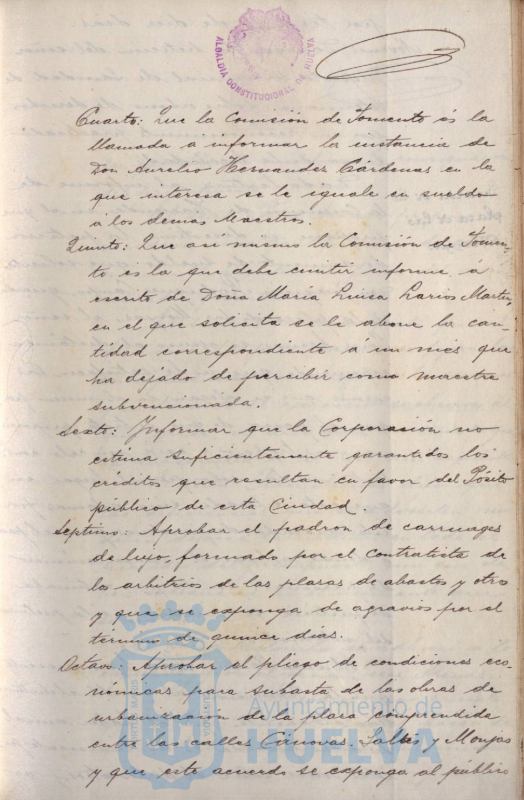 ALCALDIA CONSTITUCIONAL DE HUELVA
Cuarto: Que la Comisión de Fomento és la
llamada á informar la instancia de
Don Aurelio Hernandez Cárdenas en la
que interesa se le iguale en sueldo
á los demas Maestros.
Quinto: Que asi mismo la Comisión de Fomen-
to es la que debe emitir informe, á
escrito de Doña María Luisa Larios Martin,
en el que solicita se le abone la can-
tidad correspondiente á un mes que
ha dejado de percibir como maestra
subvencionada.
Sexto: Informar que la Corporación no
estima suficientemente garantidos los
créditos que resultan en favor del Pósito
público de esta Ciudad.
Septimo: Aprobar el padron de carruages
de lujo, formado por el contratista de
los arbitrios de las plazas de abastos y otros
y que se exponga de agravios por el
término de quince días.
Octavo: Aprobar el pliego de condiciones eco-
nómicas para subasta de las obras de
urbanización de la plaza comprendida
entre las calles Cánovas, Saltés y Monjas
y que este acuerdo se exponga al público
Ayuntamiento de
HUELVA